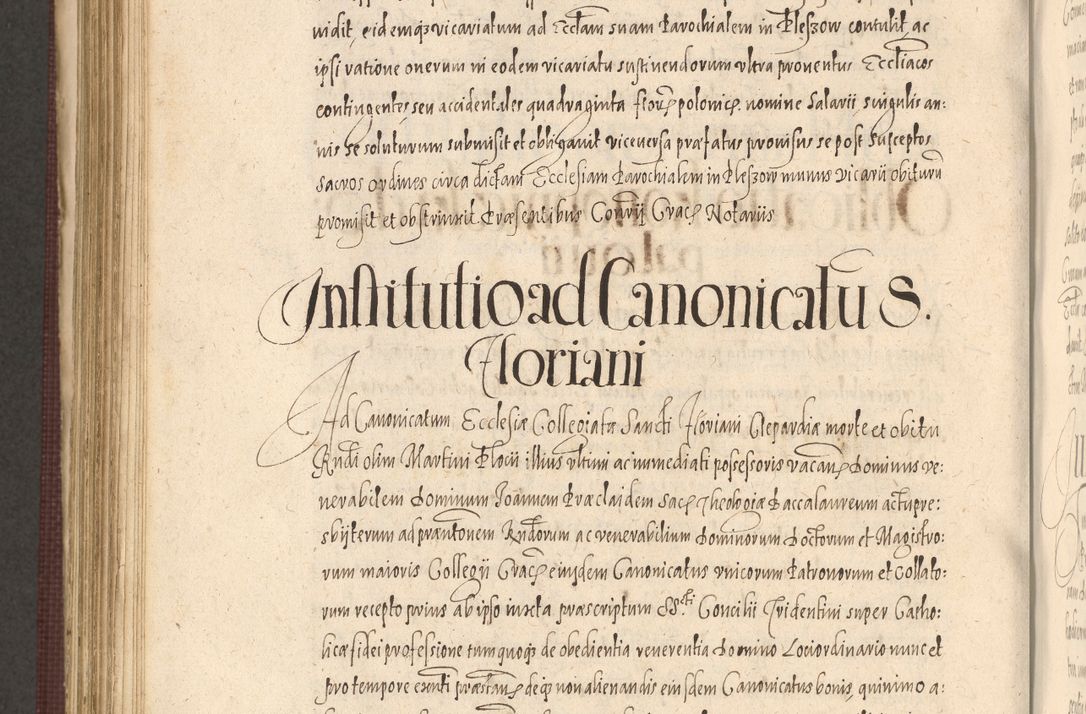 vidit, eidemque vicariatum ad Ecclam suam Parochialem in Pleszow contulit, ac
ipsi ratione onerum in eodem vicariatu sustinendorum ultra proventus Eccliacos
contingentes seu accidentales quadraginta flor: polonic: nomine Salarii singulis an:
nis se soluturum submisit et obligavit viceversa præfatus provisus se post susceptos
sacros ordines circa dictam Ecclesiam Parochialem in Pleszow munus vicarii obiturū
promisit et obstrinxit Præsentibus Cons Crac: Notariis
Institutio ad Canonicatu S.
Floriani
Ad Canonicatum Ecclesiæ Collegiatæ Sancti Floriani Clepardiæ morte et obitu
Rndi olim Martini Plocii illius ultimi ac immediati possessoris vacan: dominus ve:
nerabilem dominum Joannem Præclaidem Sac: Theologiæ Baccalaureum actu pre:
sbyterum ad præntonem Rndorum ac venerabilium dominorum doctorum et Magistro:
rum maioris Collegii Crac: eiusdem Canonicatus unicorum Patronorum et Collato:
rum recepto prius ab ipso iuxta præscriptum SS.cti Concilii Tridentini super Catho:
licæ fidei professione tum quoque de obedientia reverentia domino Lociordinario nunc et
pro tempore exnti præstan: deque non alienandis eiusdem Canonicatus bonis, quinimo a: